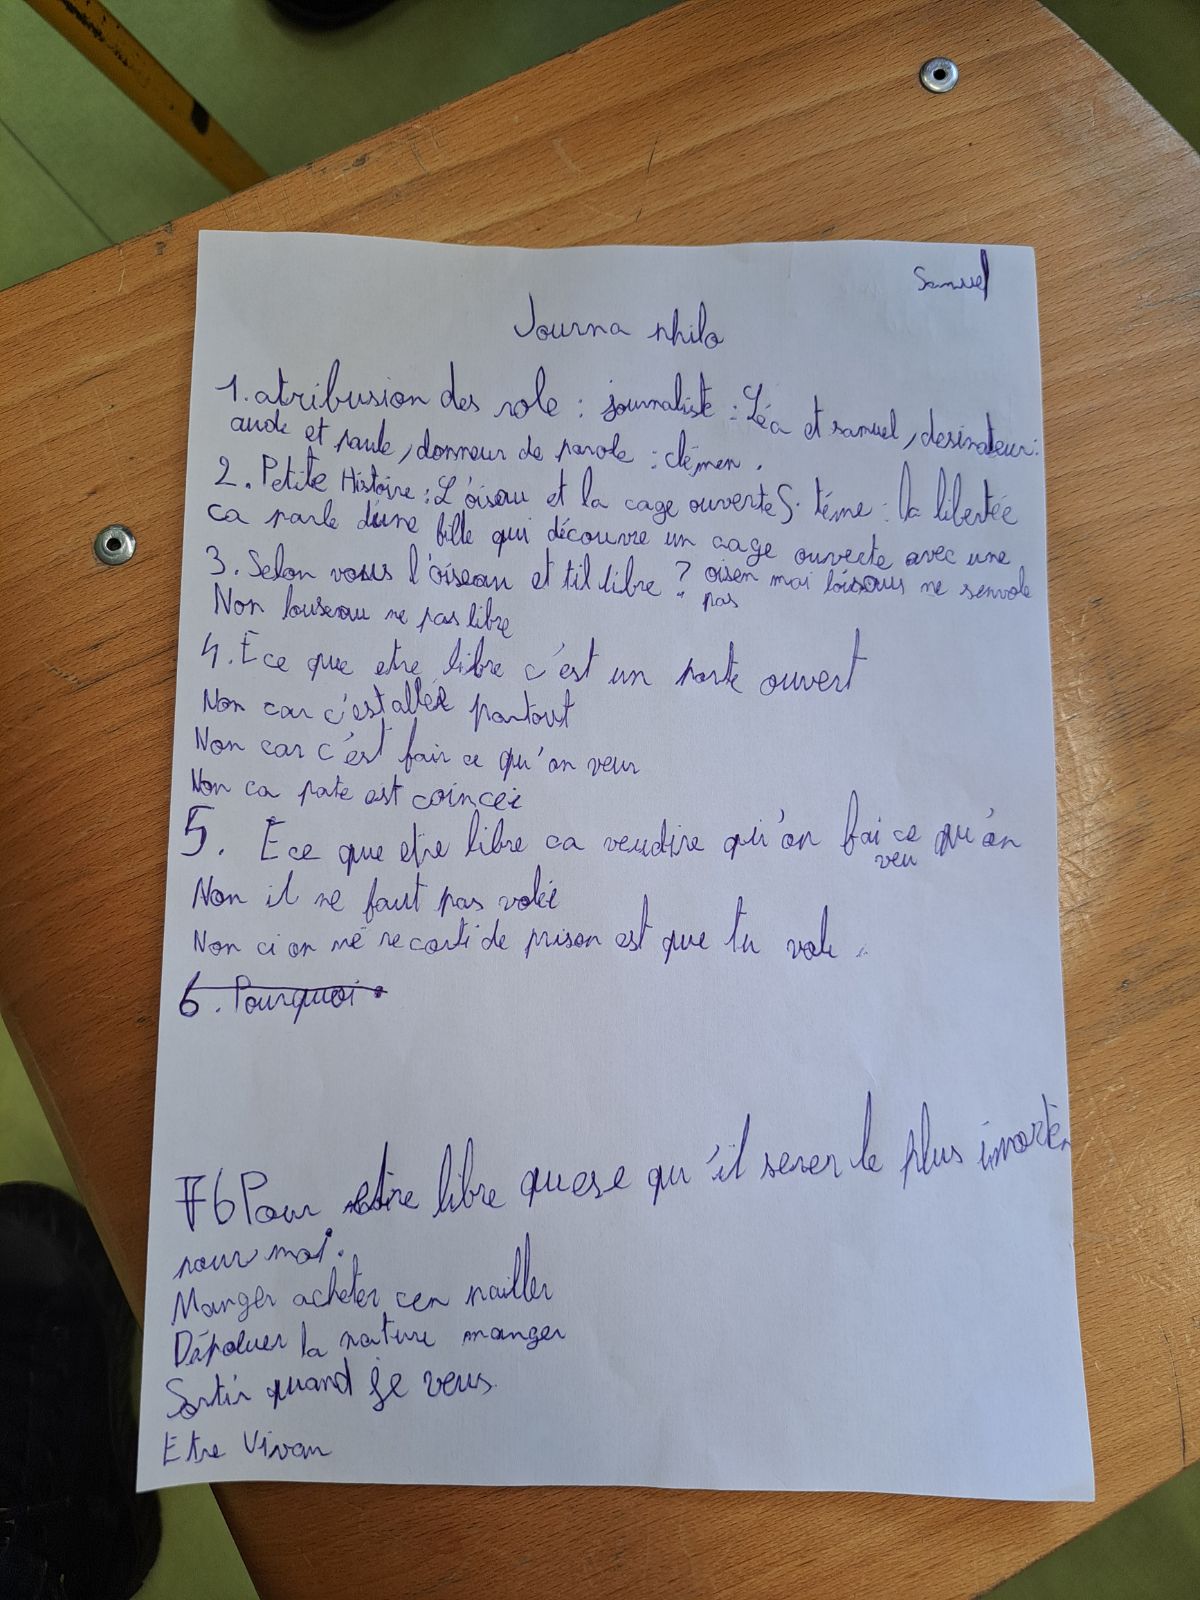 Samuel
Journa philo
1. atribusion des role : journaliste : Léa et samuel, desinateur :
aude et paule, donneur de parole : clémen.
2. Petite Histoire : L'oiseau et la cage ouverte S. téme : la libertée
ca parle d'une fille qui découvre un cage ouverte avec une
oisen mai loiseaus ne senvole
pas
3. Selon vous l'oiseau et til libre ?
Non louseau ne pas libre
4. Ece que etre libre c'est un porte ouvert
Non car c'est allée partout
Non car c'est fair ce qu'on veur
Non ca pate est coincée
5. Ece que etre libre ca veudire qu'on fai ce qu'on
veu
Non il ne faut pas volée
Non ci on me recorti de prison est que tu vole.
6. Pourquoi
6 Pour etire libre quese qu'il serer le plus imorten
pour moi.
Manger acheter cen pailler
Dépoluer la nature manger
Sortir quand je veus.
Etre Vivan